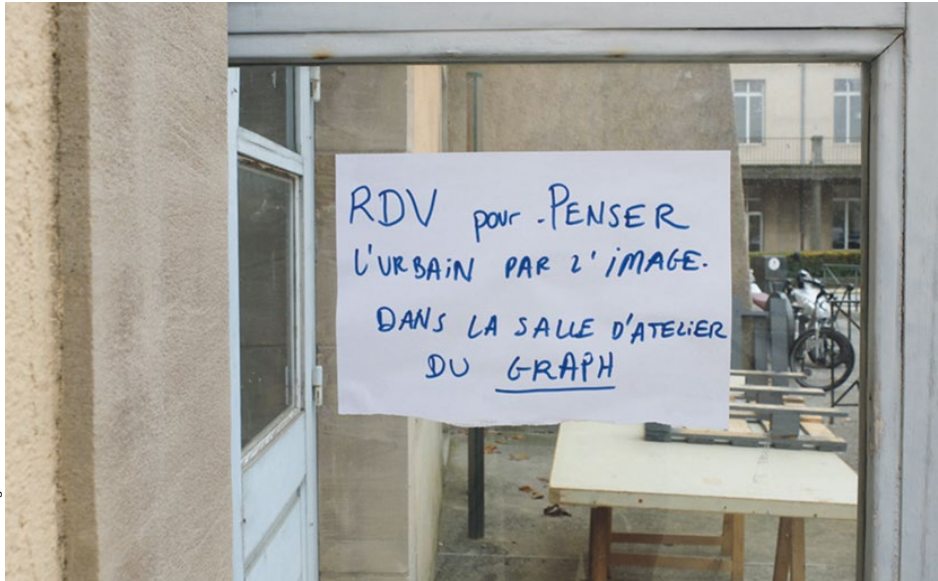 RDV pour PENSER
L'URBAIN PAR L'IMAGE.
DANS LA SALLE D'ATELIER
DU GRAPH